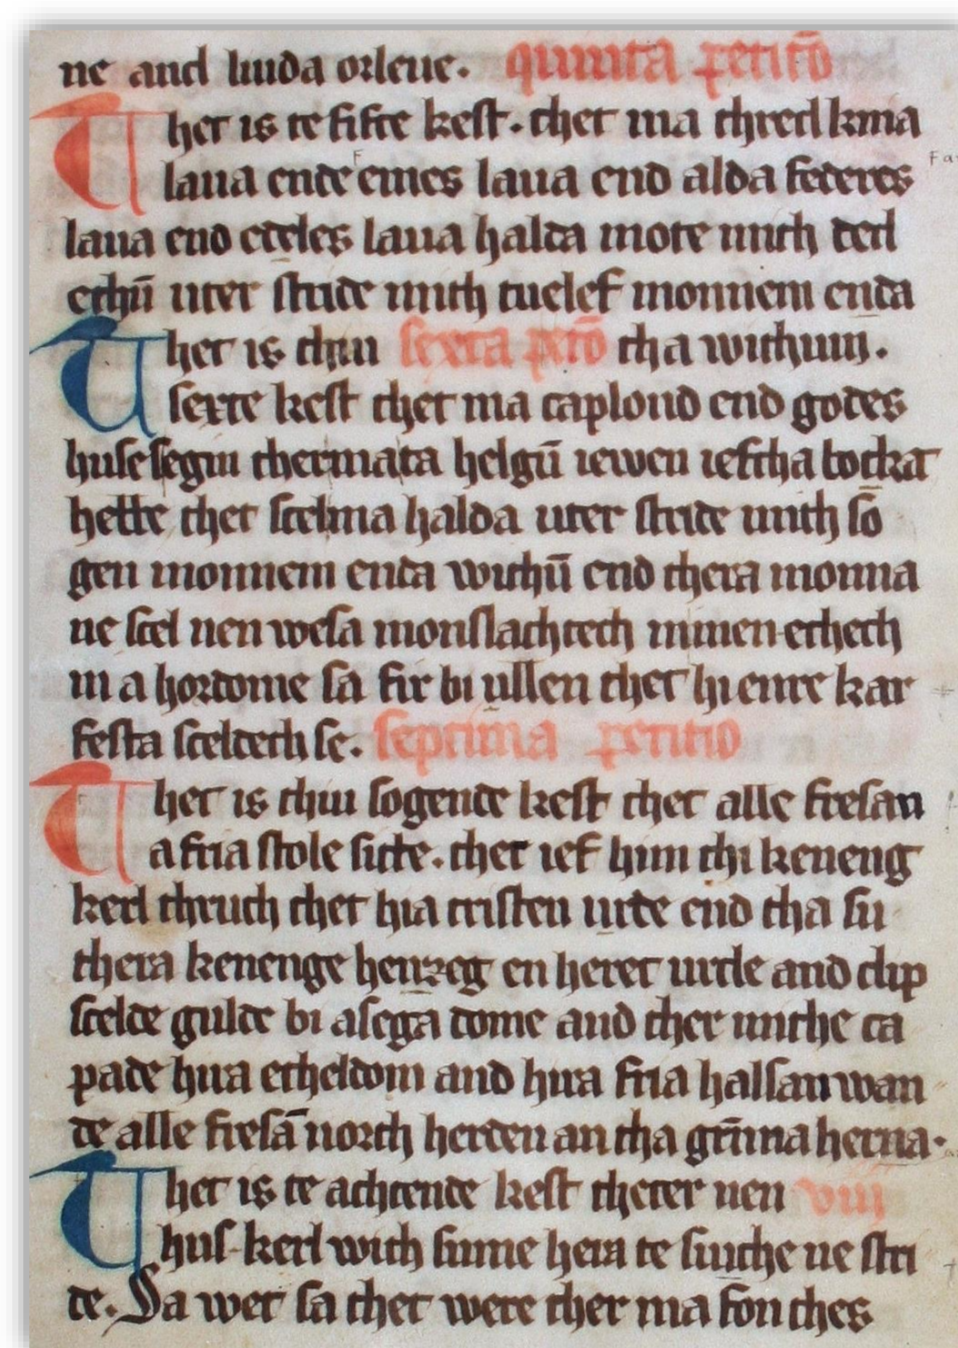 ne and liuda orleue. quinta petitō
Thet is te fifte kest. thet ma thredkma
laua ende emes laua end alda federes
laua end edeles laua halda mote mith ded
ethū uter stride mith tuelef monnem enda
Thet is thiu sexta petō tha withum.
sexte kest thet ma caplond end godes
huse segin thermata helgū iewen ieftha bocka
hette thet scelma halda uter stride mith so
gen monnem enda withū end thera monna
ne scel nen wesa monslachtech ni men ethech
ni a hordome sa fir bi ullen thet hi enre kar
festa sceldech se. septima petitio
Thet is thiu sogende kest thet alle fresan
a fria stole sitte. thet ief him thi keneng
kerl thruch thet hia cristen urde end tha su
thera kenenge henzeg en heret urtle and clip
scelde gulde bi asega dome and ther mithe ca
pade hua etheldom and hua fria halsan wan
de alle fresā north herden an tha grīma herna.
Thet is te achtende kest theter nen viii
hus kerl with sinne hera te suithe ne stri
de. Sa wet sa thet were ther ma fon thes